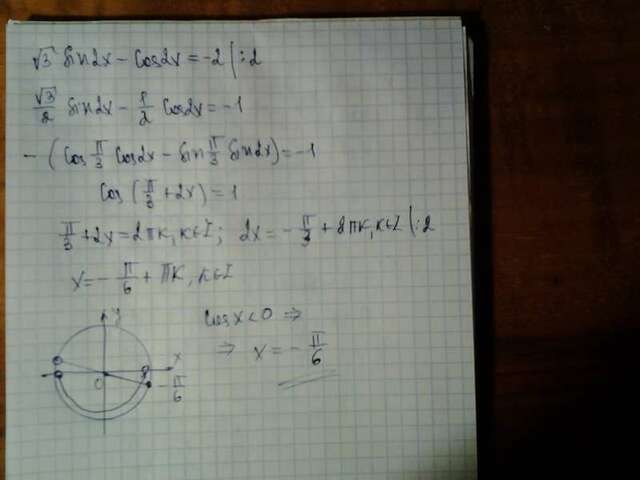 √3 sin2x - cos2x = -2 | :2
√3/2 sin2x - 1/2 cos2x = -1
- (cos π/3 cos2x - sin π/3 sin2x) = -1
cos (π/3 + 2x) = 1
π/3 + 2x = 2πk, k∈Z; 2x = - π/3 + 2πk, k∈Z | :2
x = - π/6 + πk, k∈Z
cos x < 0 ⇒
⇒ x = - π/6
y
x
0
- π/6